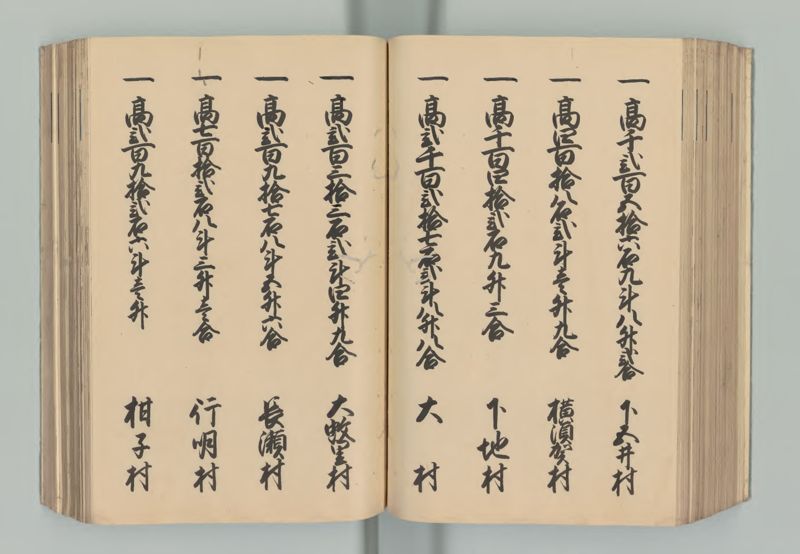 一 高千弐百五拾六石九斗八升弐合 下五井村
一 高四百拾八石弐斗壱升九合 横須賀村
一 高千百四拾弐石九升三合 下地村
一 高弐千百弐拾七石弐斗八升八合 大村
一 高弐百三拾三石弐斗四升九合 大蚊里村
一 高弐百九拾七石八斗五升六合 長瀬村
一 高七百拾弐石八斗三升壱合 行明村
一 高弐百九拾弐石六斗壱升 柑子村